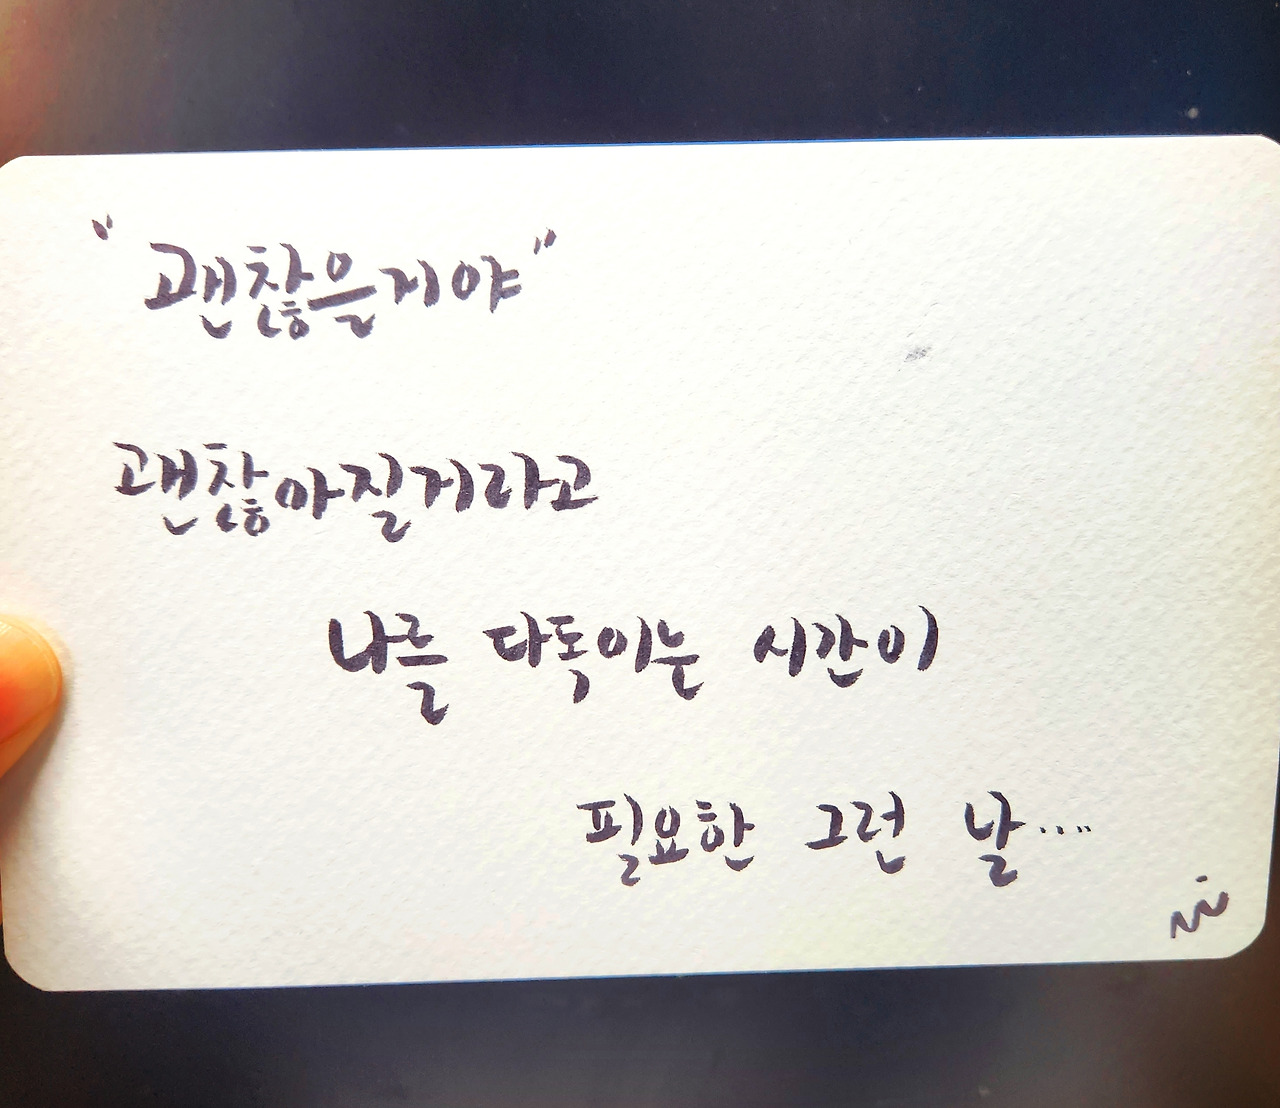 "괜찮을거야"
괜찮아질거라고
나를 다독이는 시간이
필요한 그런 날....